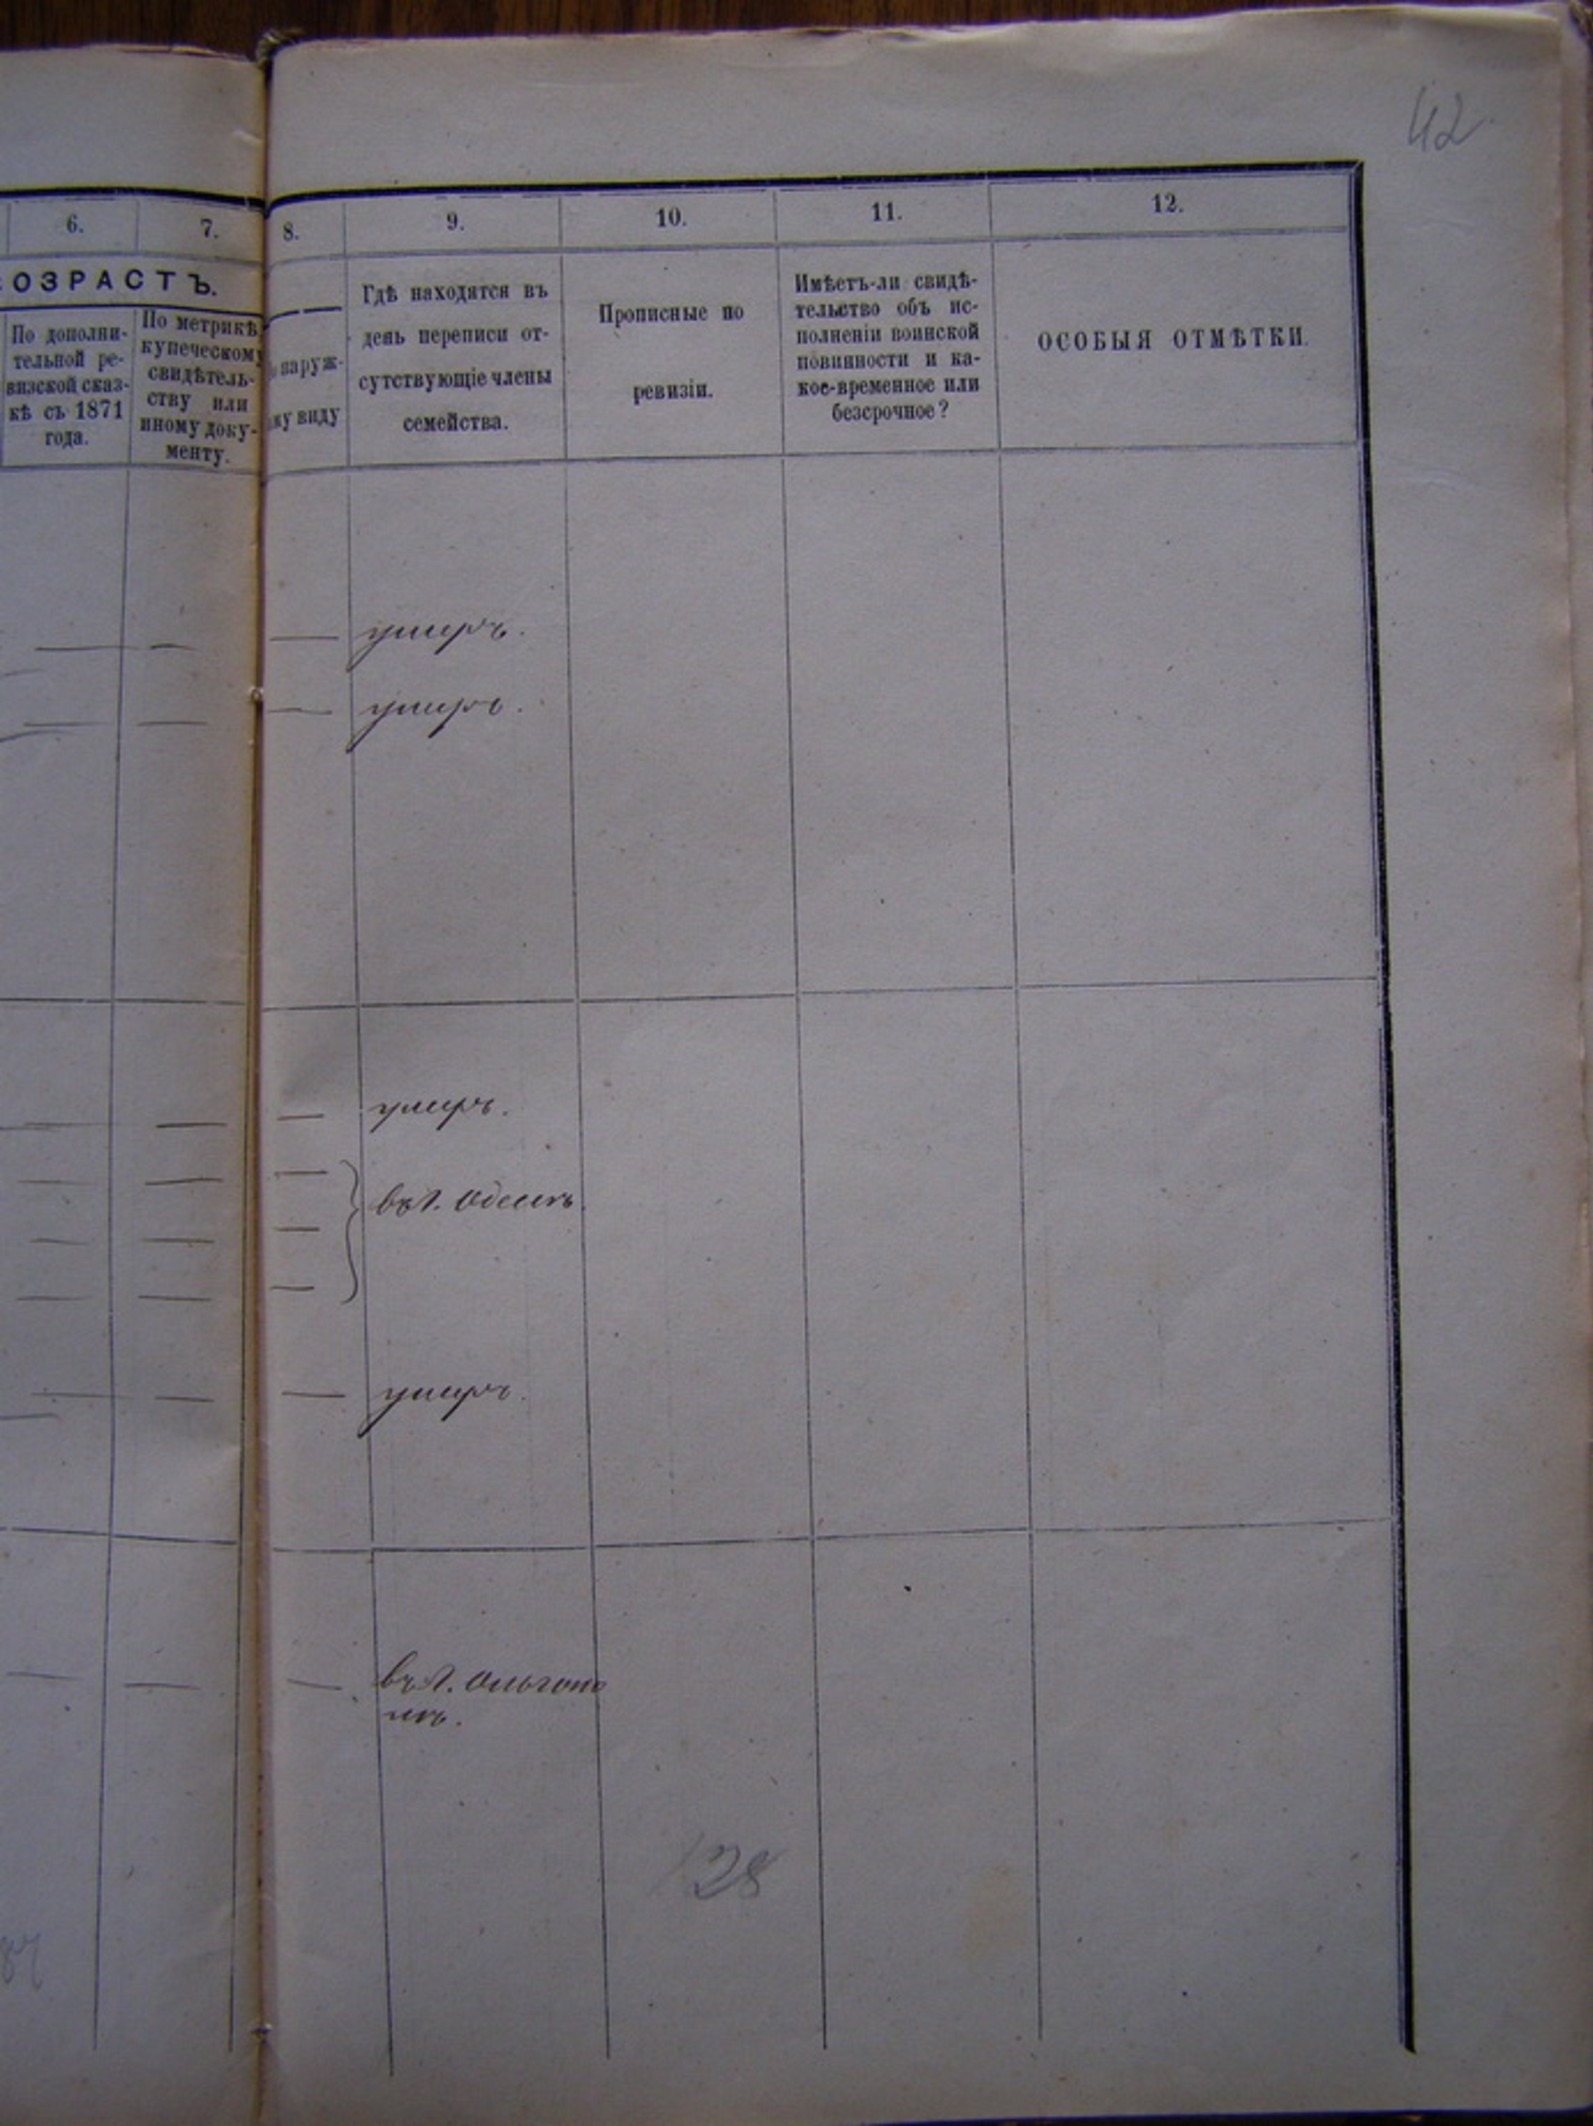 42
6.
7.
8.
9.
10.
11.
12.
ОЗРАСТЪ.
По дополни-
тельной ре-
визской сказ-
кѣ съ 1871
года.
По метрикѣ
купеческому
свидѣтель-
ству или
иному доку-
менту.
наруж-
му виду
Гдѣ находятся въ
день переписи от-
сутствующіе члены
семейства.
Прописные по
ревизіи.
Имѣетъ-ли свидѣ-
тельство объ ис-
полненіи воинской
повинности и ка-
кое-временное или
безсрочное?
ОСОБЫЯ ОТМѢТКИ.
умеръ.
умеръ.
умеръ.
въ г. Одессѣ.
умеръ.
въ г. Ольгопо
лѣ.
128